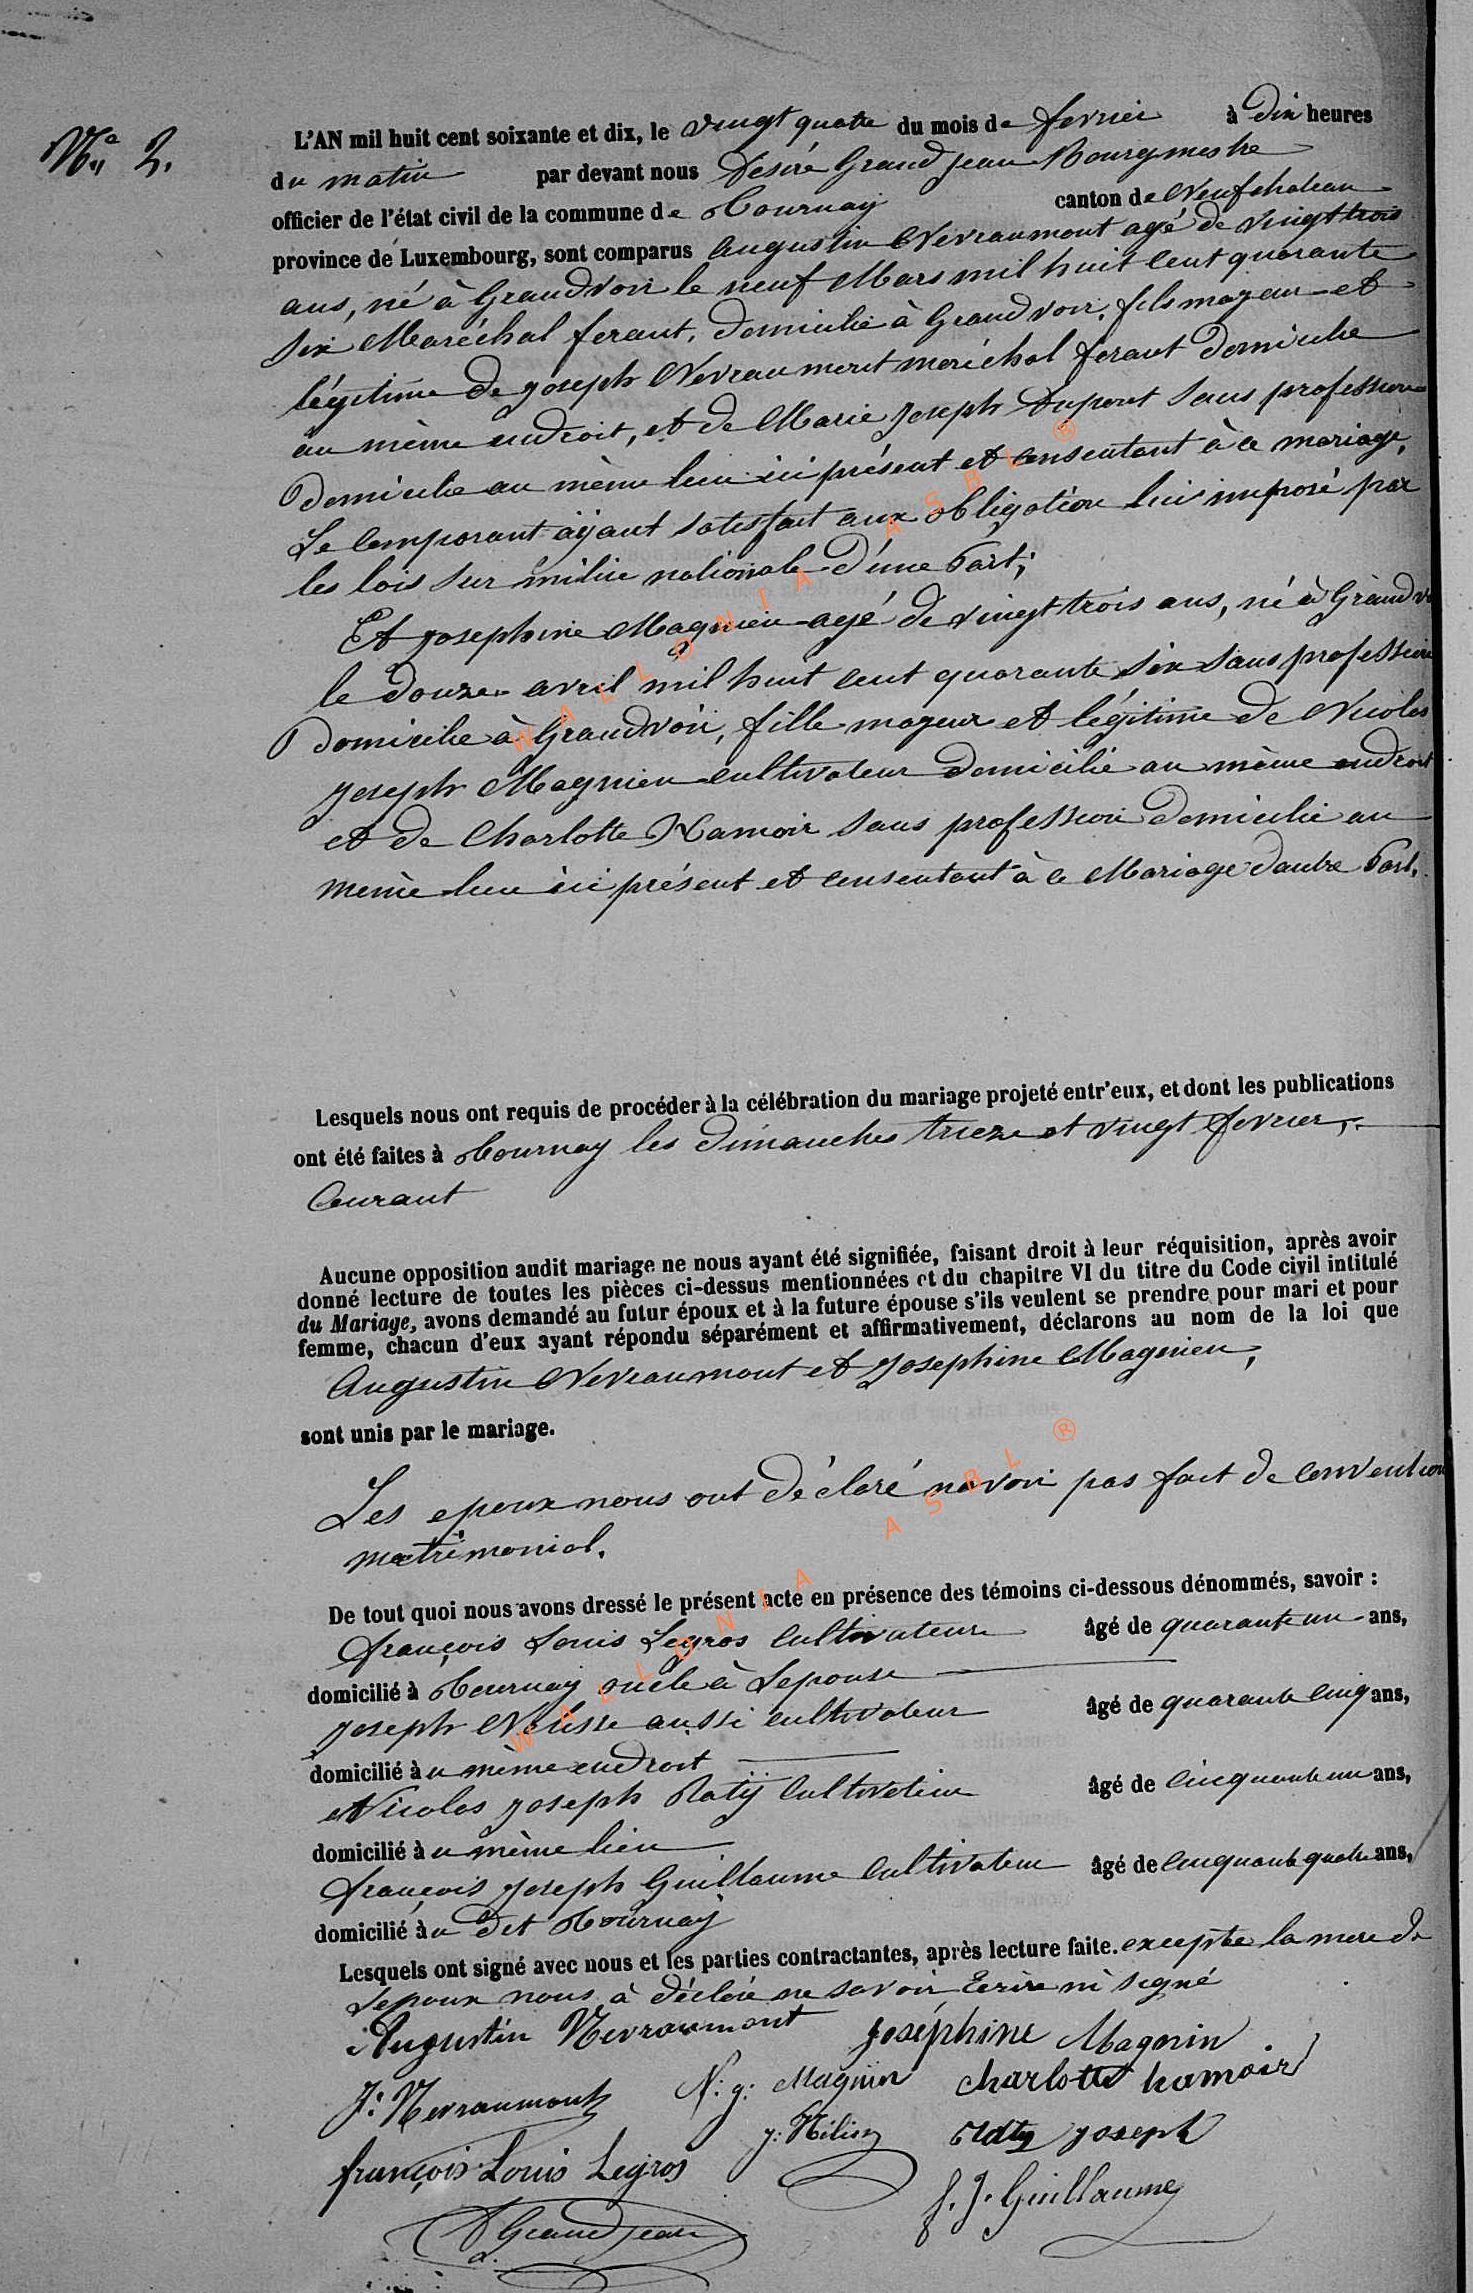 N° 2.
L'AN mil huit cent soixante et dix, le vingt quatre du mois de fevrier à dix heures
du matin par devant nous Desiré Grandjean Bourgmestre
officier de l'état civil de la commune de Tournay canton de Neufchateau
province de Luxembourg, sont comparus Augustin Nevraumont agé de vingt trois
ans, né à Grandvoir le neuf Mars mil huit cent quarante
six Maréchal ferant, domicilié à Grandvoir, fils mageur et
légitime de joseph Nevraumont maréchal ferant domicilie
au même endroit, et de Marie joseph Dupont sans profession
domicilie au même lieu ici présent et consentant à ce mariage,
Le comparant ayant satisfait aux obligation lui imposé par
les lois sur milice nationale d'une Part;
Et josephine Magnien agé de vingt trois ans, né à Grandv
le douze avril mil huit cent quarante six sans profession
domicilie à Grandvoir, fille mageur et légitime de Nicolas
joseph Magnien cultivateur domicilié au même endroit
et de Charlotte Hamoir sans profession domicilie au
même lieu ici présent et consentant à ce Mariage dautre Part.
Lesquels nous ont requis de procéder à la célébration du mariage projeté entr'eux, et dont les publications
ont été faites à Tournay les dimanches trieze et vingt fevrier,
Courant
Aucune opposition audit mariage ne nous ayant été signifiée, faisant droit à leur réquisition, après avoir
donné lecture de toutes les pièces ci-dessus mentionnées et du chapitre VI du titre du Code civil intitulé
du Mariage, avons demandé au futur époux et à la future épouse s'ils veulent se prendre pour mari et pour
femme, chacun d'eux ayant répondu séparément et affirmativement, déclarons au nom de la loi que
Augustin Nevraumont et Josephine Magnien,
sont unis par le mariage.
Les epoux nous ont déclaré navoir pas fait de convention
matrimonial.
De tout quoi nous avons dressé le présent acte en présence des témoins ci-dessous dénommés, savoir :
françois Louis Legros cultivateur âgé de quarante un ans,
domicilié à Tournay oncle à Lepouse
joseph aussi cultivateur âgé de quarante cinq ans,
domicilié au même endroit
et Nicolas joseph Raty Cultivateur âgé de cinquante un ans,
domicilié au même lieu
françois joseph Guillaume Cultivateur âgé de cinquante quatre ans,
domicilié au dit Tournay
Lesquels ont signé avec nous et les parties contractantes, après lecture faite. excepté la mere de
Lepoux nous à déclaré ne savoir Ecrire ni signé
Augustin Nevraumont joséphine Magnin
J: Nevraumont N: j: Magnien charlotte hamoir
françois Louis Legros Raty joseph
f. J. Guillaume
D Grandjean
WALLONIA ASBL ®
WALLONIA ASBL ®